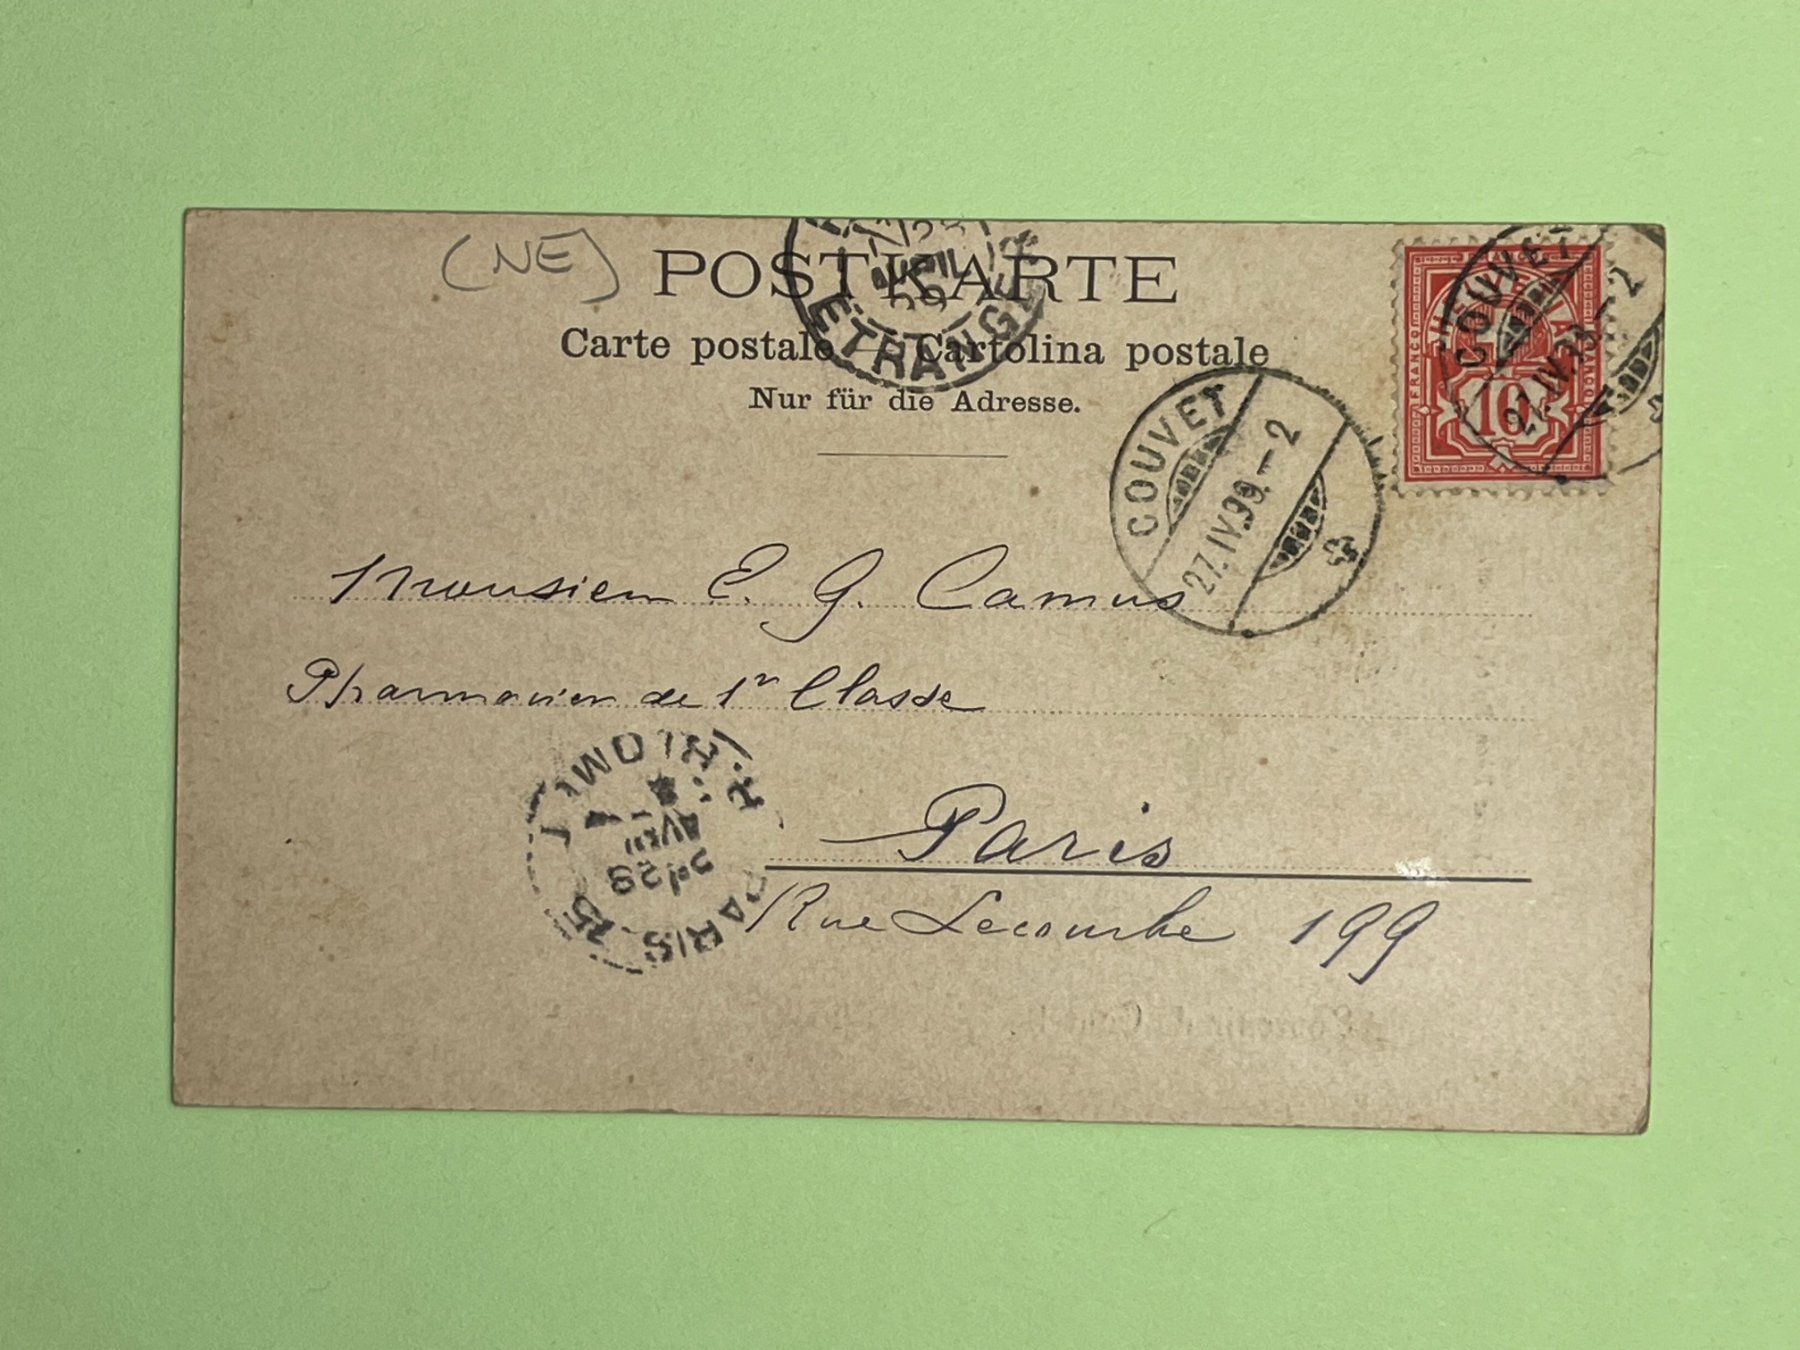 (NE)
POSTKARTE
ETRANGER
Carte postale — Cartolina postale
Nur für die Adresse.
COUVET
27.IV.99.-2
FRANCO
10
COUVET
27.IV.99.-2
Monsieur E. G. Camus
Pharmacien de 1r Classe
Paris
Rue Lecourbe 199
PARIS
AVRIL